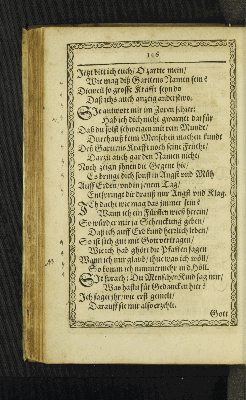 106
Jetzt bitt ich euch / O zarte mein /
Wie mag diß Gartens Namen sein?
Dieweil so grosse Krafft seyn do
Daß ichs auch anzeig anderstwo.
Sie antwort mir im Zoren schier:
Hab ich dich nicht gewarnt darfür
Daß du solst schweigen mit dem Munde /
Durchauß kein Menschen machen kundt
Deß Gartens Krafft noch seine Frücht /
Darzu auch gar den Namen nicht;
Noch zeign ihnen die Gegent hie:
Es bringt dich sonst in Angst und Müh
Auff Erden / und in jenem Tag /
Entspringt dir darauß nur Angst und Klag.
Ich dacht wie mag das immer sein?
Wann ich ein Fürsten weiß herein /
So würd er mir ja Schenckung geben /
Daß ich auff Erd kund herzlich leben /
So ist sich gut mit Gott vertragen /
Wie ich hab ghört die Pfaffen sagen
Wann ich nur glaub / thue was ich wöll /
So komm ich nimmermehr in d Höll.
Sie sprach: Du Menschen Kind sag mir /
Was hastu für Gedancken hier?
Ich sagt ihr / wie erst gemelt /
Darauff sie mir also erzehlt.
Gott